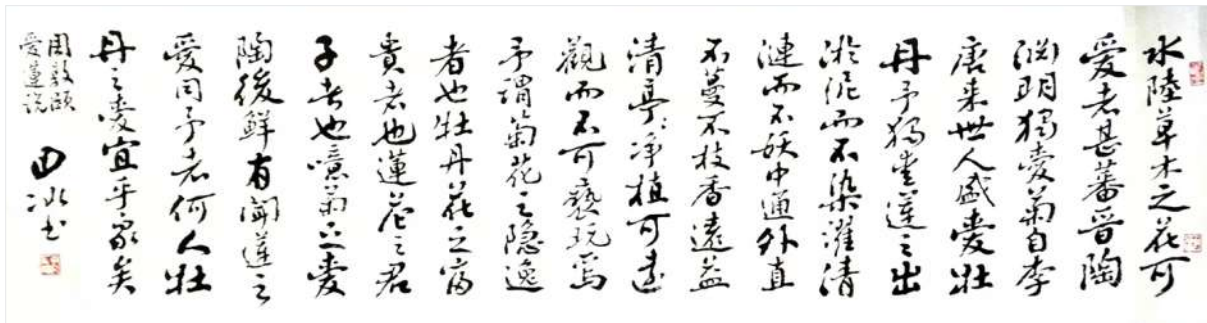 水陸草木之花可
愛者甚蕃晋陶
渊明獨愛菊自李
唐来世人盛愛牡
丹予獨愛蓮之出
淤泥而不染濯清
漣而不妖中通外直
不蔓不枝香遠益
清亭〻净植可遠
觀而不可褻玩焉
予謂菊花之隐逸
者也牡丹花之富
貴者也蓮花之君
子者也噫菊之愛
陶後鮮有聞蓮之
愛同予者何人牡
丹之愛宜乎衆矣
周敦颐
愛蓮说
田冰书